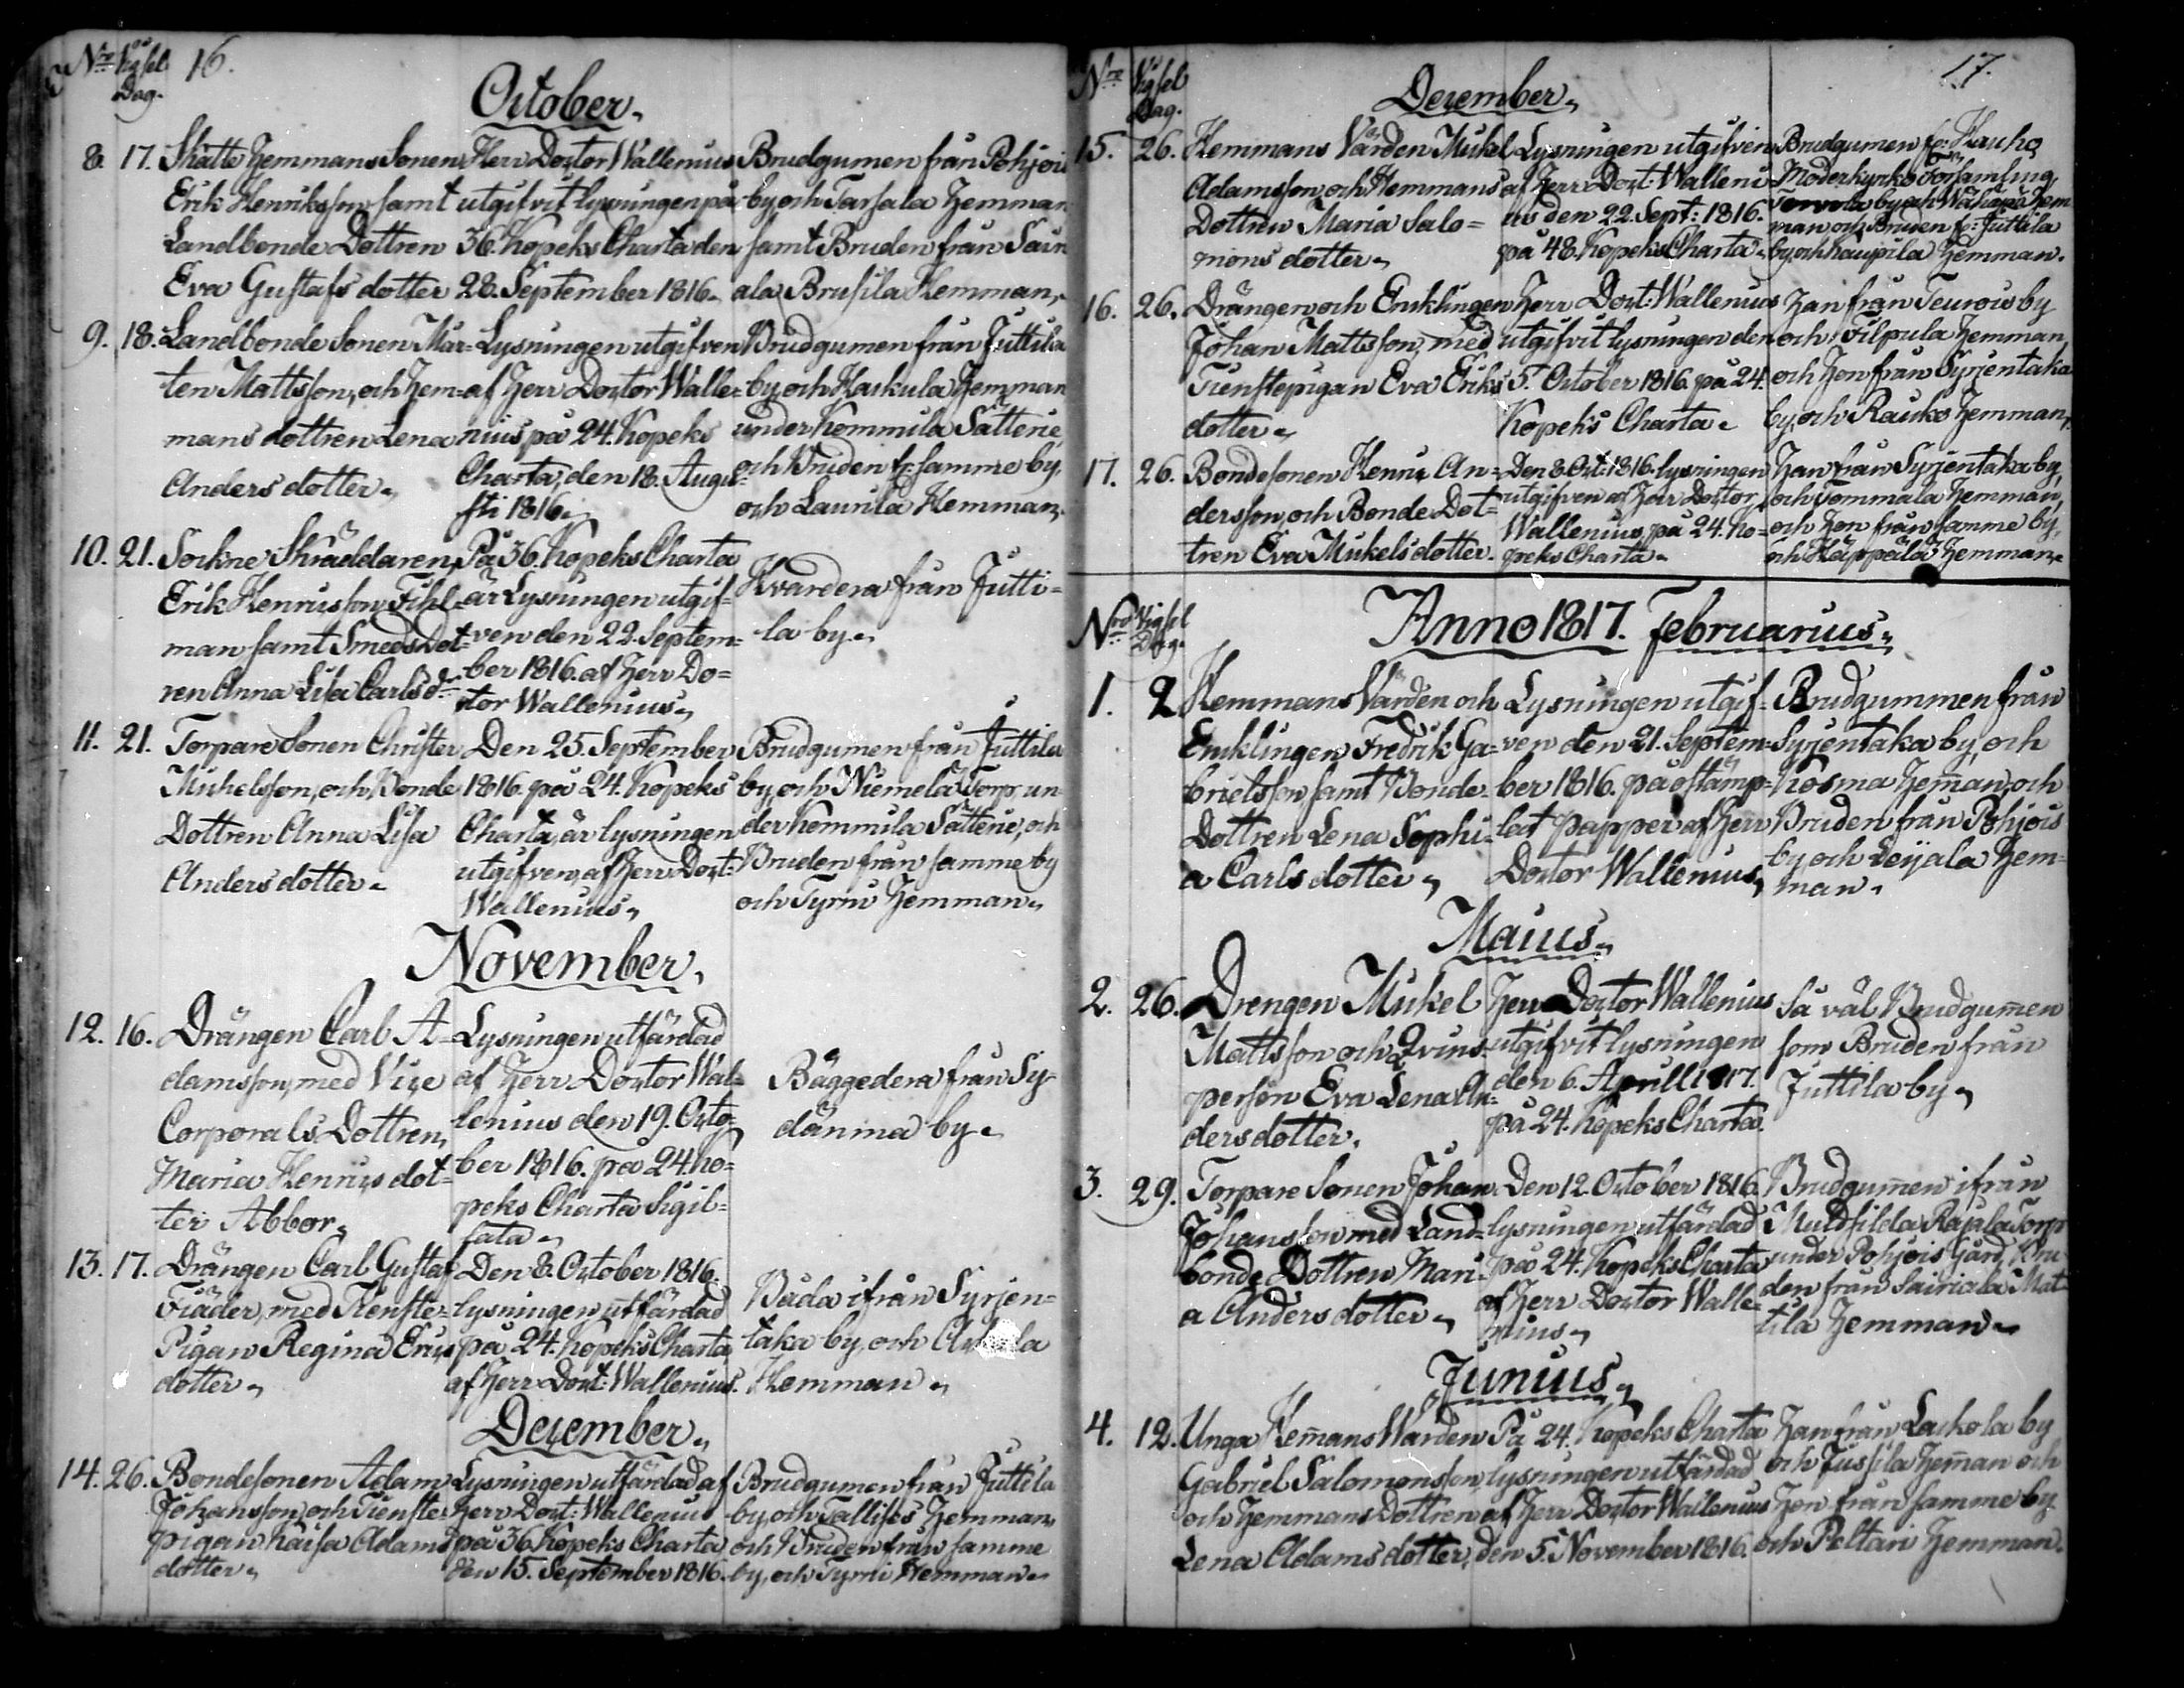 Nro Vigsel Dag. 16.
October.
8. 17. Skatte Hemmans Sonen
Erik Henriksson samt
Landbonde Dottren
Eva Gustafs dotter
Herr Doctor Wallenius
utgifvit lysningen på
36. Kopeks Charta den
28. September 1816.
Brudgumen från Pohjois
by, och Tarsala Hemman
samt Bruden från Sairi
ala, Brusila Hemman,
9. 18. Landbonde Sonen Mår=
ten Mattsson, och Hem=
mans dottren Lena
Anders dotter.
Lysningen utgifven
af Herr Doctor Walle=
nius på 24. Kopeks
Charta, den 18. Augu=
sti 1816.
Brudgumen från Juttila
by, och Kaskula Hemman
under Kommila Säterie,
och Bruden fr: samme by,
och Laurila Hemman.
10. 21. Sockne Skräddaren
Erik Henricsson Fihl=
man samt Smeds Dot=
ren Anna Lisa Carlsdr
På 36. Kopeks Charta
är Lysningen utgif=
ven den 22. Septem=
ber 1816. af Herr Do=
ctor Wallenius.
Hvardera från Jutti=
la by.
11. 21. Torpare Sonen Christer
Michelsson, och Bonde
Dottren Anna Lisa
Anders dotter.
Den 25. September
1816. på 24. Kopeks
Charta, är lysningen
utgifven, af Herr Doct:
Wallenius.
Brudgumen från Juttila
by, och Niemelä Torp, un=
der Kommila Säterie, och
Bruden från samme by
och Tyrni Hemman.
November.
12. 16. Drängen Carl A=
damsson, med Vice
Corporals Dottren,
Maria Henrics dot=
ter Abbor.
Lysningen utfärdad
af Herr Doctor Wal=
lenius den 19. Octo=
ber 1816. på 24. Ko=
peks Charta Sigil=
lata.
Bäggedera från Sy=
dänma by.
13. 17. Drängen Carl Gustaf
Fiäder, med Tienste=
Pigan Regina Erics
dotter.
Den 8. October 1816.
lysningen utfärdad
på 24. Kopeks Charta
af Herr Doct: Wallenius.
Båda ifrån Syrjen=
taka by, och
Hemman.
December.
14. 26. Bondesonen Adam
Johansson, och Tienste
pigan Kaisa Adams
dotter.
Lysningen utfärdad af
Herr Doct: Wallenius
på 36 Kopeks Charta
den 15. September 1816.
Brudgumen från Juttila
by, och Tallijos Hemman
och Bruden från samme
by, och Tyrni Hemman.
Nro Vigsel Dag. 17.
December.
15. 26. Hemmans Värden Mikel
Adamsson, och Hemmans
Dottren Maria Salo=
mons dotter.
Lysningen utgifven
af Herr Doct: Walleni=
us den 22. Sept: 1816.
på 48. Kopeks Charta.
Brudgumen fr: Hauho
Moderkyrko Församling,
by, och Hem
man och Bruden fr: Juttila
by, och Kaupila Hemman.
16. 26. Drängen och Enklingen
Johan Mattsson, med
Tienstepigan Eva Eriks
dotter.
Herr Doct: Wallenius
utgifvit lysningen den
5. October 1816. på 24.
Kopeks Charta.
Han från Teurois by
och Filpula Hemman,
och Hon från Syrjentaka
by, och Rauko Hemman.
17. 26. Bondesonen Henric An=
dersson, och Bonde Dot=
tren Eva Mickelsdotter.
Den 8. Oct: 1816. lysningen
utgifven af Herr Doctor
Wallenius, på 24. Ko=
peks Charta.
Han från Syrjentaka by,
och Tommala Hemman,
och Hon från samme by,
och Käppälä Hemman.
Nro Vigsel Dag.
Anno 1817. Februarius.
1. 2 Hemmans Värden och
Encklingen Fredrik Ga=
brielsson samt Bonde=
Dottren Lena Sophi=
a Carls dotter.
Lysningen utgif=
ven den 21. Septem=
ber 1816. på ostämp=
lat papper af Herr
Doctor Wallenius.
Brudgummen från
Syrjentaka by, och
Kosma Hem̄an, och
Bruden från Pohjois
by, och Leijala Hem=
man.
Maius.
2. 26. Drengen Mickel
Mattsson och Qvins=
person Eva Lena An=
ders dotter.
Herr Doctor Wallenius
utgifvit lysningen
den 6. Aprill 1817.
på 24. Kopeks Charta.
Så väl Brudgum̄en
som Bruden från
Juttila by.
3. 29. Torpare Sonen Johan
Johansson med Land=
bonde Dottren Mari=
a Anders dotter.
Den 12. October 1816.
lysningen utfärdad
på 24. Kopeks Charta
af Herr Doctor Walle=
nius.
Brudgum̄en ifrån
Muldsilda Rajala Torp
under Pohjois Gård, Bru
den från Sairiala Mat=
tila Hemman.
Junius.
4. 12. Unga Hem̄ans Wärden
Gabriel Salomonsson,
och Hemmans Dottren
Lena Adams dotter.
På 24. Kopeks Charta
lysningen utfärdad
af Herr Doctor Wallenius
den 5. November 1816.
Han från Lackola by
och Jussila Hem̄an och
Hon från samme by
och Peltari Hemman.